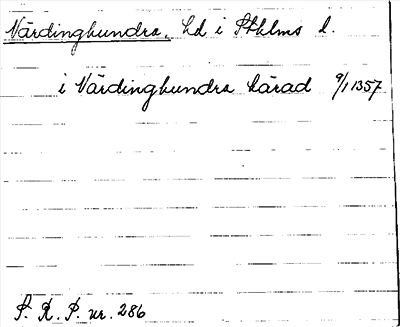 Närdinghundra, hd i Sthlms l.
i Närdinghundra härad 9/1 1357
S. R. P. nr. 286